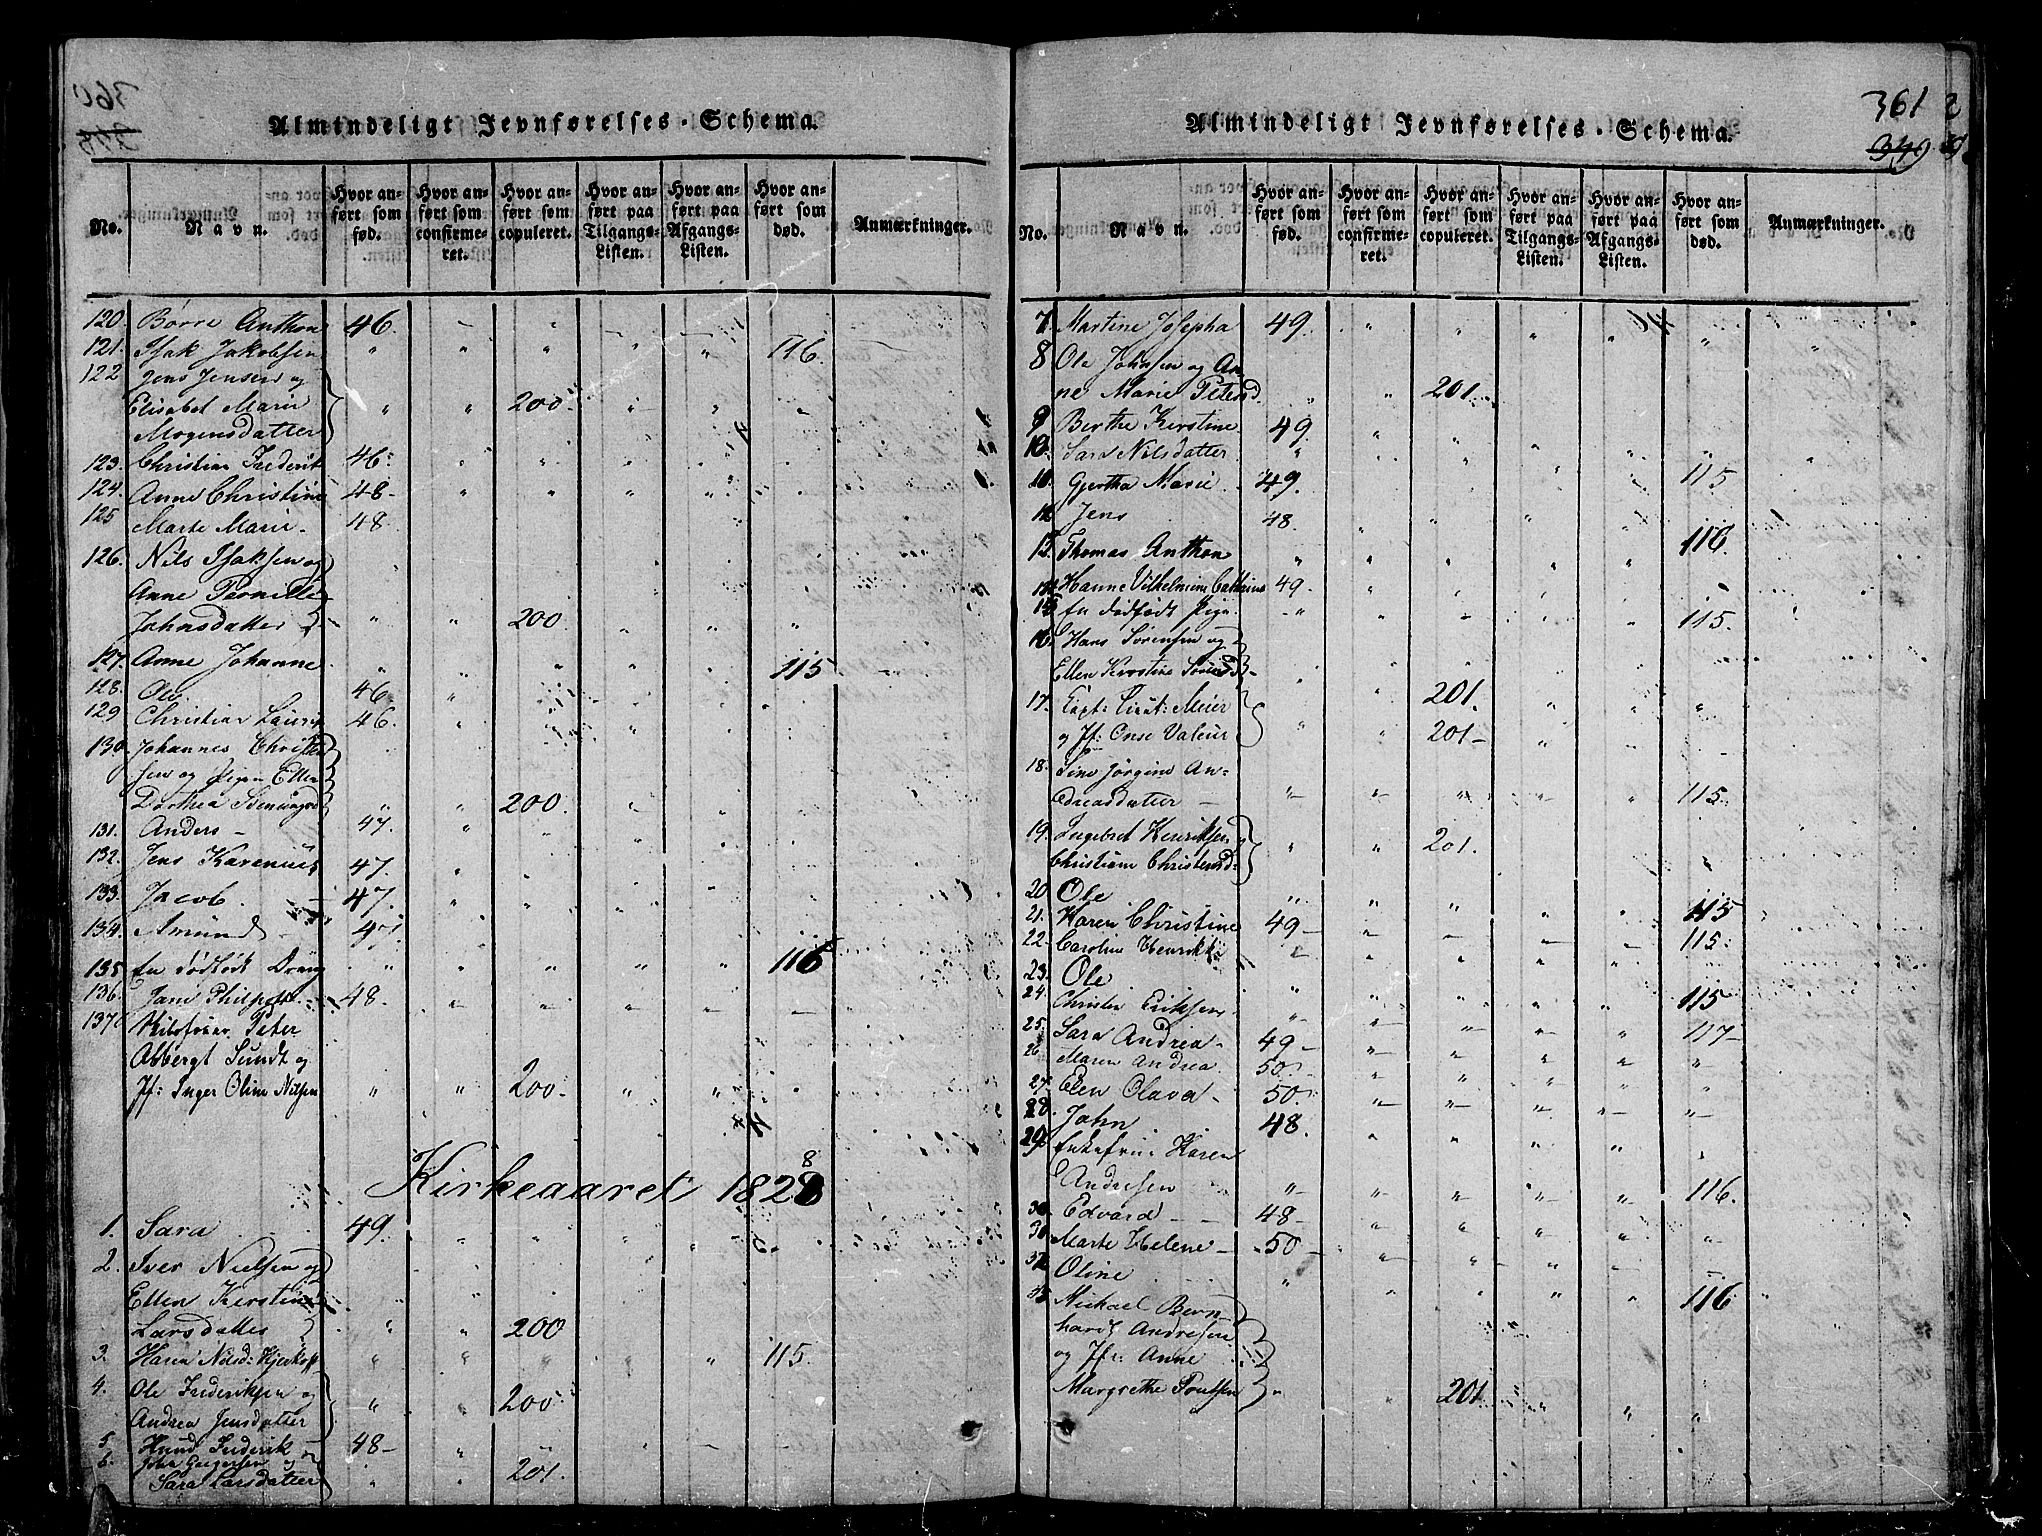 360
348
Almindeligt Jevnførelses-Schema.
No. Navn. Hvor anført som fød. Hvor anført som confirmeret. Hvor anført som copuleret. Hvor anført paa Tilgangs-Listen. Hvor anført paa Afgangs-Listen. Hvor anført som død. Anmærkninger.
120 Børre Anthon 46. " " " " "
121. Isak Jakobsen " " " " " 116.
122 Jens Jensen og
Elisabet Marie " " 200. " " "
Mogensdatter
123. Christian Frederik 46. " " " " "
124. Anne Christine 48 - " " " " "
125 Marte Marie - 48.
126. Nils Isaksen og
Anne Pernille
Johnsdatter " " 200 " " "
127. Anne Johanne " " " " 115
128. Ole. 46
129 Christian Laurits 46.
130. Johannes Christen
sen og Pigen Ellen
Dorthea Svenungsd " " 200.
131. Anders - 47.
132. Jens Karenius 47.
133. Jacob. 47.
134. Amund - 47.
135 En dødfødt Dreng " " " " 116
136. Jane 48. - " " " - -
137
Asbergt Sundt og
Jf: Inger Oline Nilsen " " 200. " " "
Kirkeaaret 1828
1. Sara 49. " " " "
2. Iver Nielsen og
Ellen Kirstine
Larsdatter " " 200
3. Karen Nilsd: " " " " " 115.
4. Ole Frederiksen og
Andrea Jensdatter " " 200.
5. Knud Frederik 48 -
6. John Gregersen og
Sara Larsdatter " " 201.
361
349
Almindeligt Jevnførelses-Schema.
No. Navn. Hvor anført som fød. Hvor anført som confirmeret. Hvor anført som copuleret. Hvor anført paa Tilgangs-Listen. Hvor anført paa Afgangs-Listen. Hvor anført som død. Anmærkninger.
7. Martine Josepha 49. " " " " "
8 Ole Johnsen og An-
ne Marie Petersd. " " 201.
9 Berthe Kirstine. 49.
10. Sara Nilsdatter " " " " " 115
11. Gjertha Marie 49.
12 Jens 48.
13. Thomas Anthon " " " " " 116.
14. Hanne Vilhelmine Cathrine 49.
15 En dødfødt Pige. " " " " " 115.
16. Hans Sørensen og
Ellen Kirstine Sørensd - " " 201.
17. Capt: Lieut: Meier
og Jf: Onse Valeur " " 201 -
18. Line Jørgine An=
dreasdatter - " " " " " 115.
19. Ingebret Henriksen
Christiane Christensd= " " 201.
20 Ole " " " " " 115
21. Karen Christine 49 - " " " " 115.
22. Caroline Henrikke
23. Ole " " " " " 115
24. Christen Eriksen " " " " " 117 -
25. Sara Andrea - 49 -
26 Maren Andrea 50. -
27. Elen Olava - 50.
28. John 48.
29. Enkefrue Karen
Andresen " " " " " 116.
30. Edvard - 48 -
31. Marte Helene - 50 -
32. Oline " " " " " 116
33. Michael Bern
hardt Andresen
og Jfr: Anne
Margrethe Poulsen " " 201.